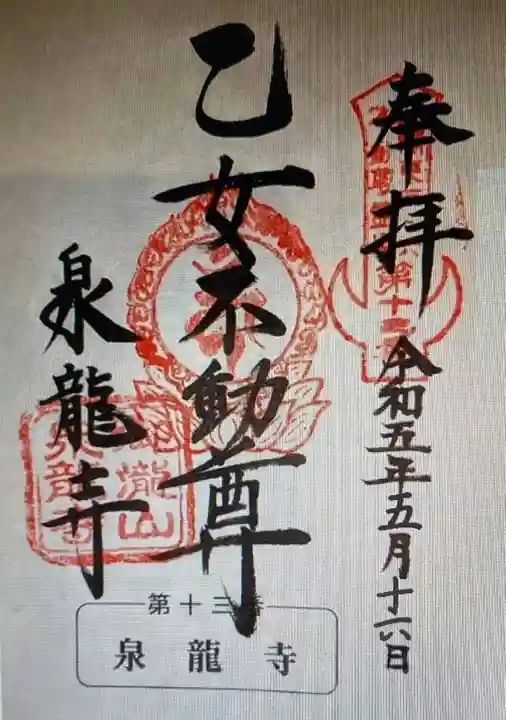 奉拝
令和五年五月十六日
乙女不動尊
泉龍寺
第十三番
泉龍寺